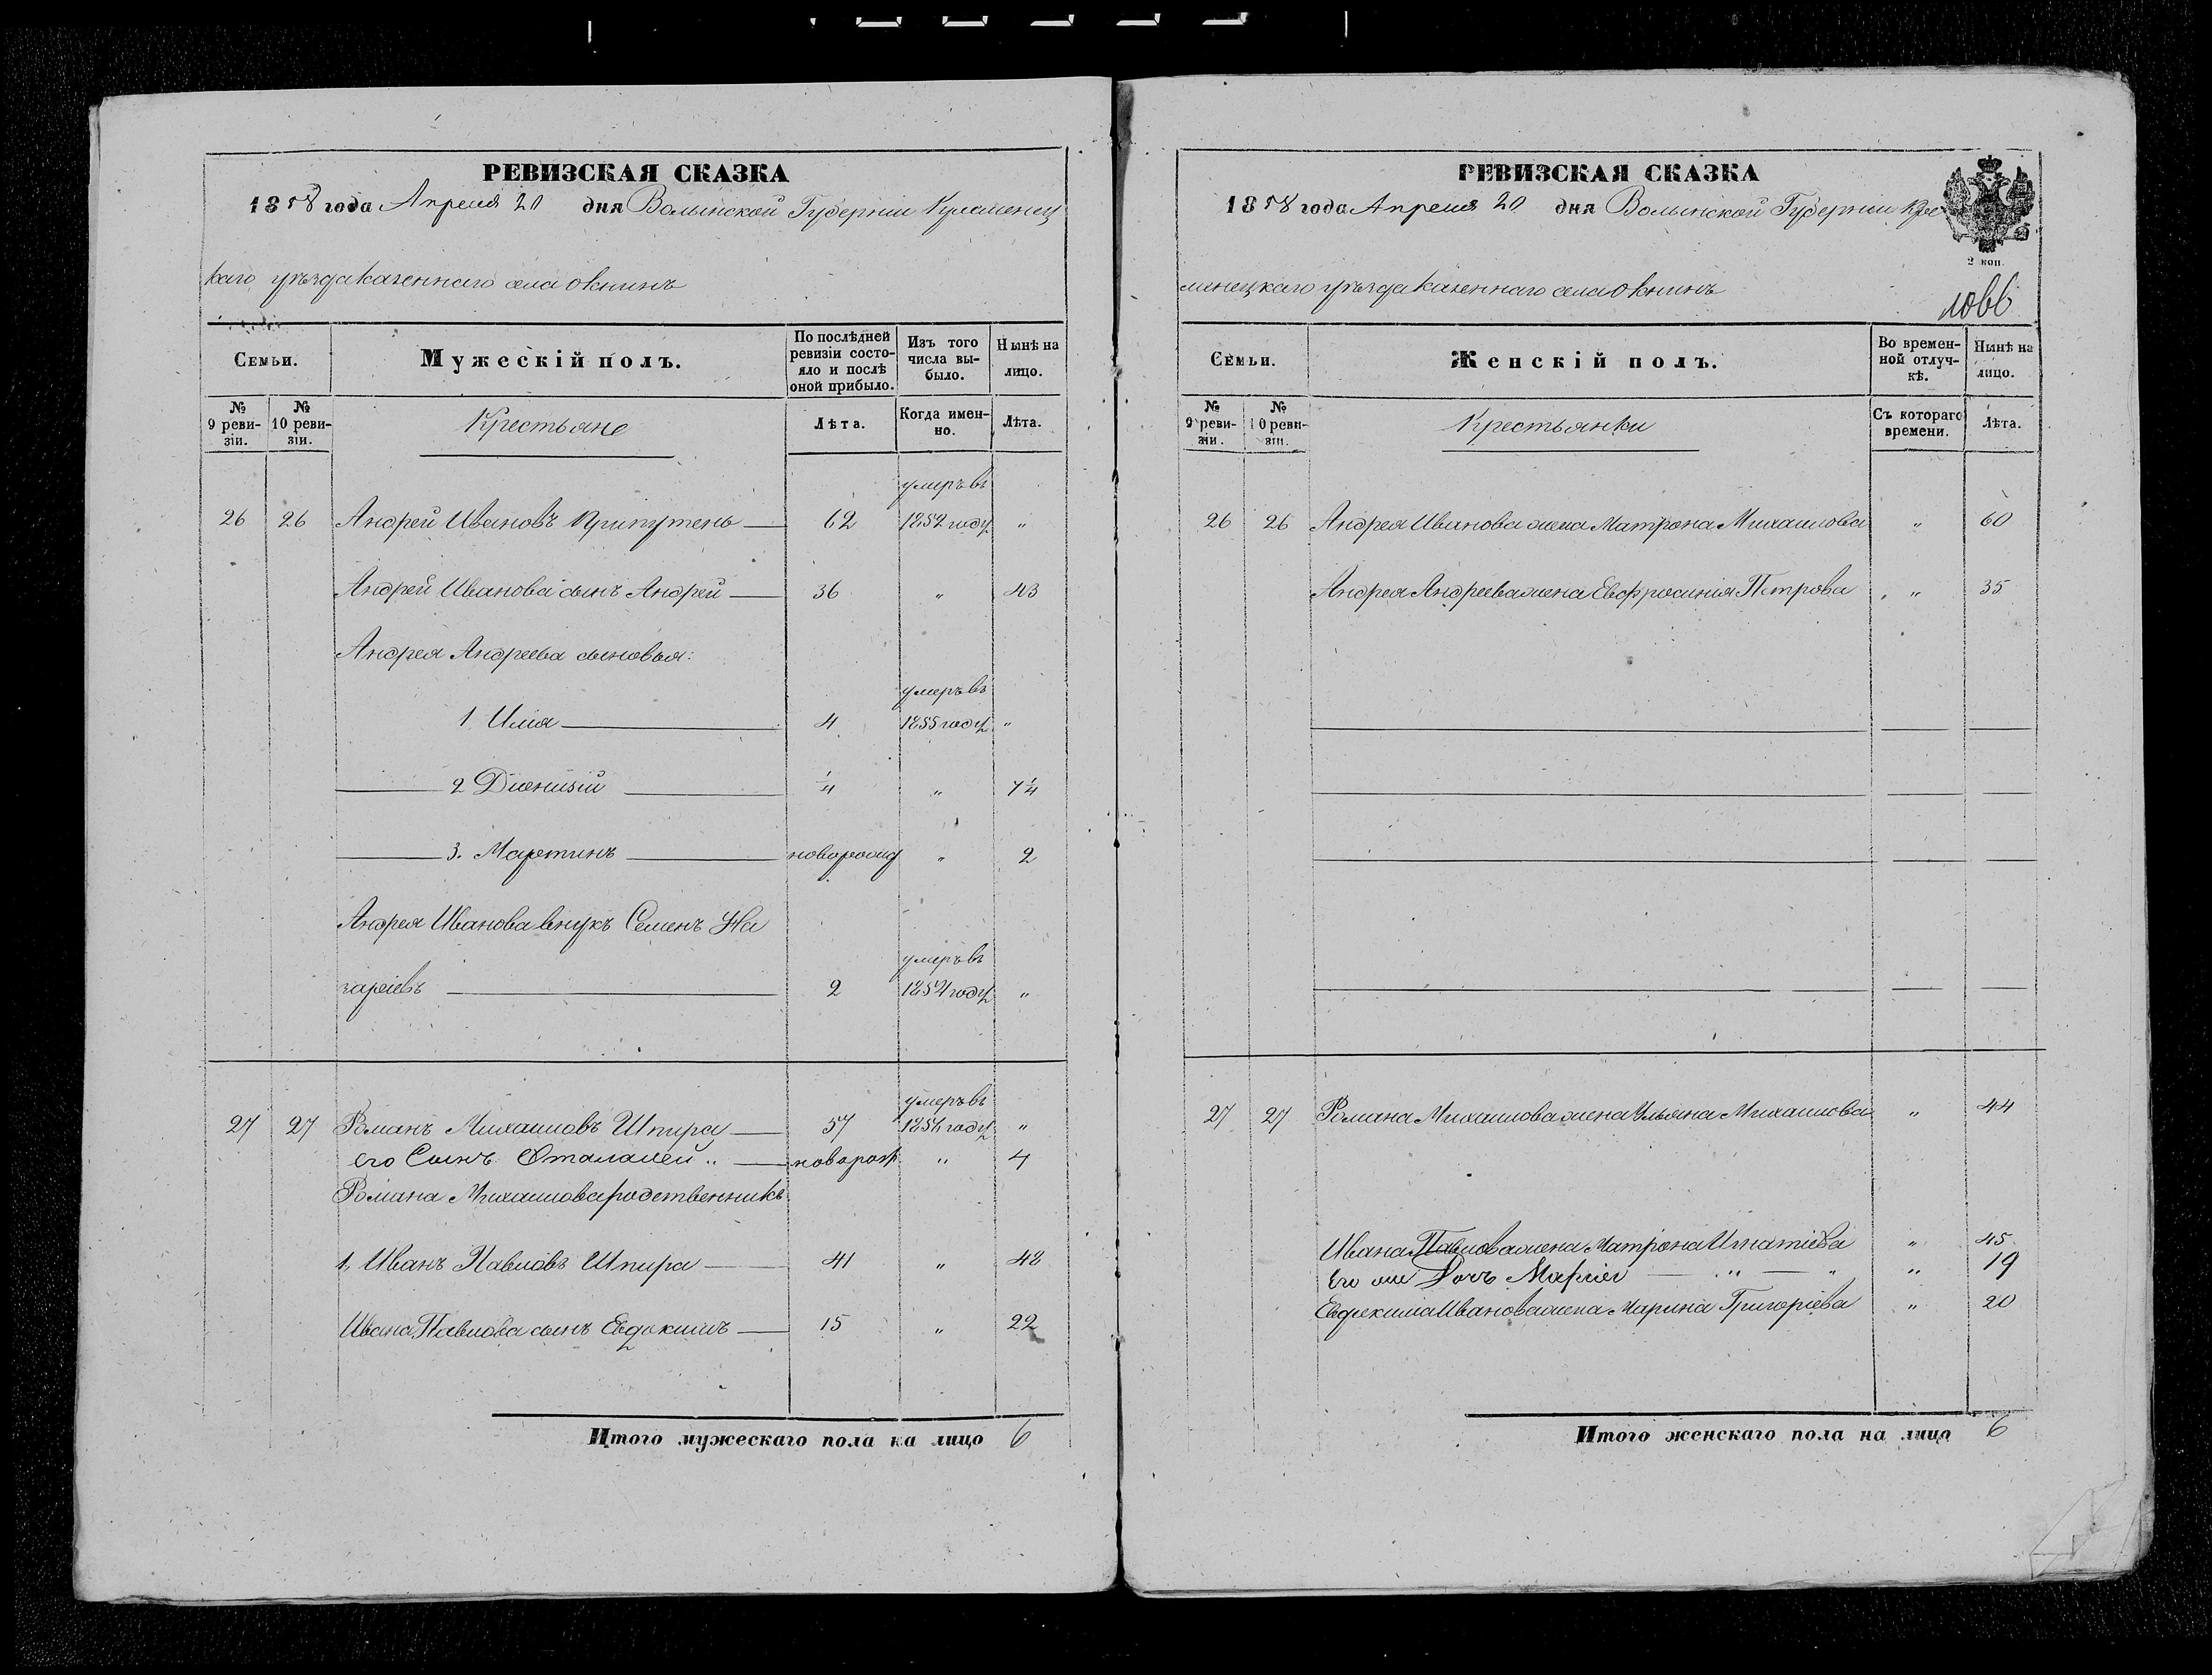 РЕВИЗСКАЯ СКАЗКА
1858 года Апреля 20 дня Волынской Губерніи Кременец
каго уѣзда казеннаго села Окнинъ
Семьи.
Мужескій полъ.
По послѣдней ревизіи состояло и послѣ оной прибыло.
Изъ того числа выбыло.
Нынѣ на лицо.
№ 9 ревизіи.
№ 10 ревизіи.
Крестьяне
Лѣта.
Когда именно.
Лѣта.
умеръ въ
26 26 Андрей Ивановъ Припутень 62 1852 году "
Андрей Иванова сынъ Андрей 36 " 43
Андрея Андреева сыновья:
умеръ въ
1 Илія 4 1855 году "
2 Діонизій 1/4 " 7 1/4
3. Мартинъ новорожд " 2
Андрея Иванова внукъ Семенъ На
умеръ въ
заріевъ 2 1854 году "
умеръ въ
27 27 Романъ Михаиловъ Шпира 57 1856 году "
Его Сынъ Фталалей .. новорож " 4
Романа Михаилова родственникъ
1, Иванъ Павловъ Шпира 41 " 48
Ивана Павлова сынъ Евдокимъ 15 " 22
Итого мужескаго пола на лицо 6
РЕВИЗСКАЯ СКАЗКА
1858 года Апреля 20 дня Волынской Губерніи Кре
2 коп.
менецкаго уѣзда казеннаго села Окнинъ
Семьи.
Женскій полъ.
Во временной отлучкѣ.
Нынѣ на лицо.
№ 9 ревизіи.
№ 10 ревизіи.
Крестьянки
Съ котораго времени.
Лѣта.
26 26 Андрея Иванова жена Матрона Михаилова " 60
Андрея Андреева жена Евфросинія Петрова " 35
27 27 Романа Михаилова жена Ульяна Михаилова " 44
Ивана Павлова жена Матрона Игнатіева " 45
Его же Дочъ Марія " " " 19
Евдокима Иванова жена Марина Григоріева " 20
Итого женскаго пола на лицо 6